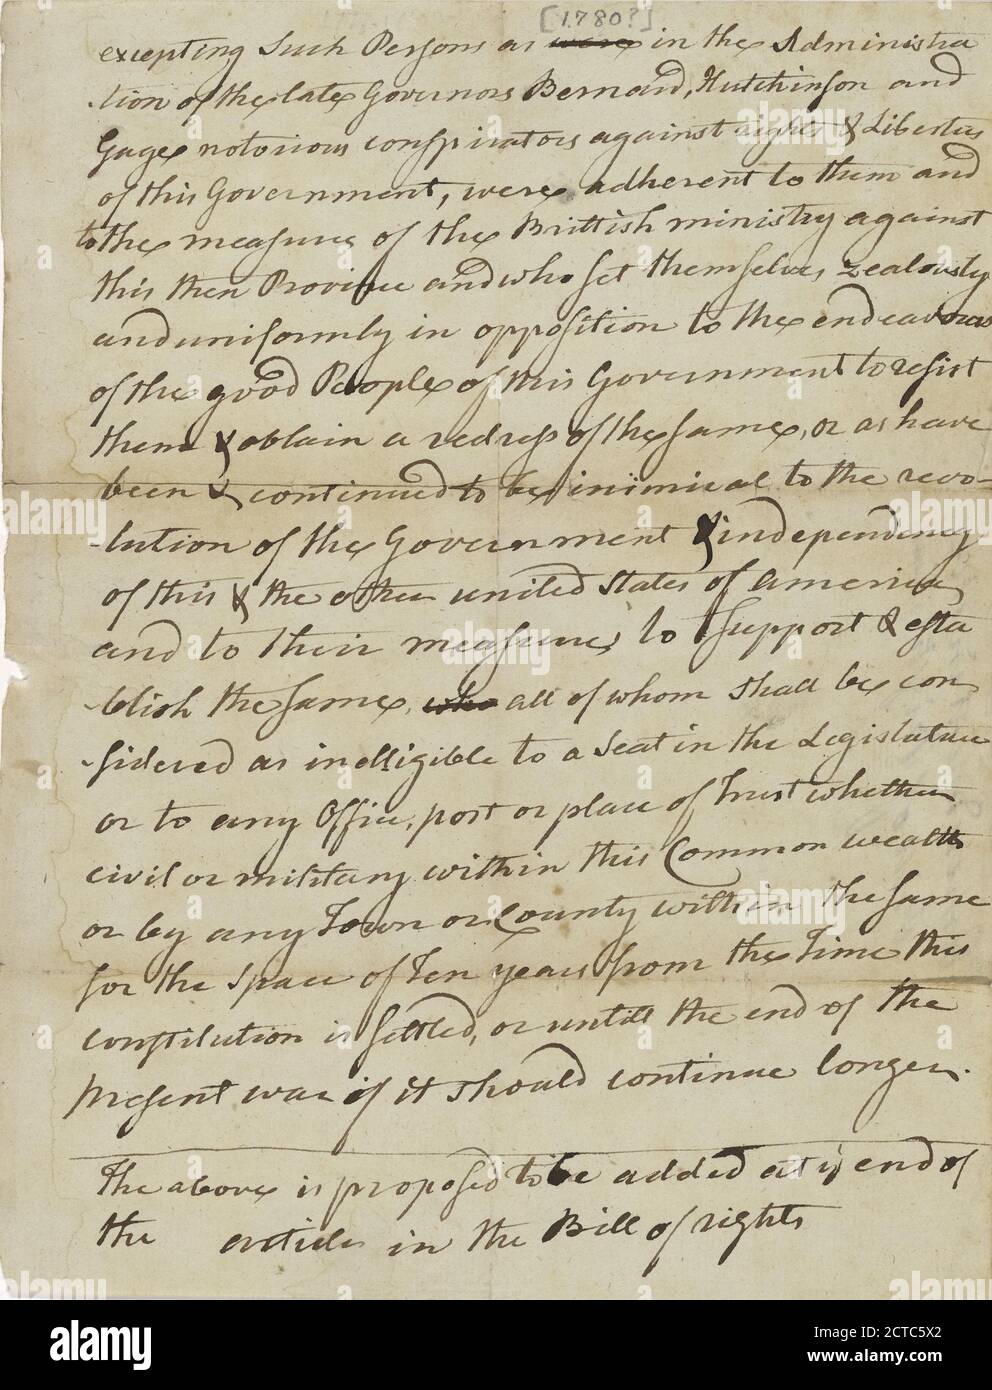 [1780?]
excepting Such Persons as were in the Administra
-tion of the late Governors Bernard, Hutchinson and
Gage notorious conspirators against rights & Liberties
of this Government, were adherent to them and
to the measures of the Brittish ministry against
this then Province and who set themselves zealously
and uniformly in opposition to the endeavours
of the good People of this Government to resist
them & obtain a redress of the same, or as have
been & continued to be inimical to the revo-
-lution of the Government & independency
of this & the other united States of America
and to their measures to support & esta
-blish the same, who all of whom shall be con
-sidered as inelligible to a Seat in the Legislature
or to any Office, post or place of Trust whether
civil or military within this Common wealth
or by any Town or County within the same
for the Space of Ten years from the Time this
constitution is settled, or untill the end of the
present war if it should continue longer.
The above is proposed to be added at ye end of
the articles in the Bill of rights
alamy
Image ID: 2CTC5X2
www.alamy.com